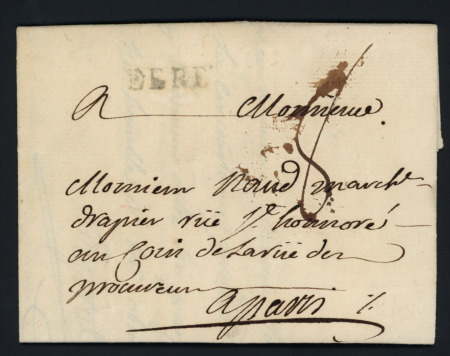 DE RE
A Monsieur
8
Monsieur marchd
drapier rüe St honnoré
au Coin de la rüe des
prouveres
a paris %